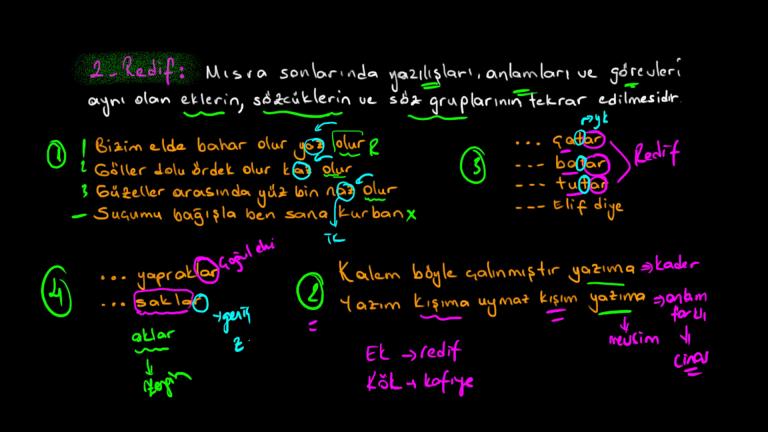 2-Redif: Mısra sonlarında yazılışları, anlamları ve görevleri
aynı olan eklerin, sözcüklerin ve söz gruplarının tekrar edilmesidir.
1
1 Bizim elde bahar olur yaz olur R
2 Göller dolu ördek olur kaz olur
3 Güzeller arasında yüz bin naz olur
- Suçumu bağışla ben sana kurban x
TC
3
yk
... çatar
--- batar
--- tutar
--- Elif diye
Redif
4
... yapraklar Çoğul eki
... saklar
→ geniş
z.
aklar
↓
Zengin
2
Kalem böyle çalınmıştır yazıma ⇒ kader
Yazım kışıma uymaz kışım yazıma ⇒ anlam
farklı
↓
mevsim
↓
cinas
Ek → redif
Kök → kafiye